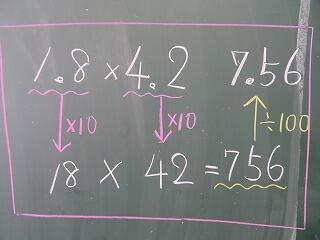 1.8 × 4.2 7.56
×10 ×10 ÷100
18 × 42 = 756